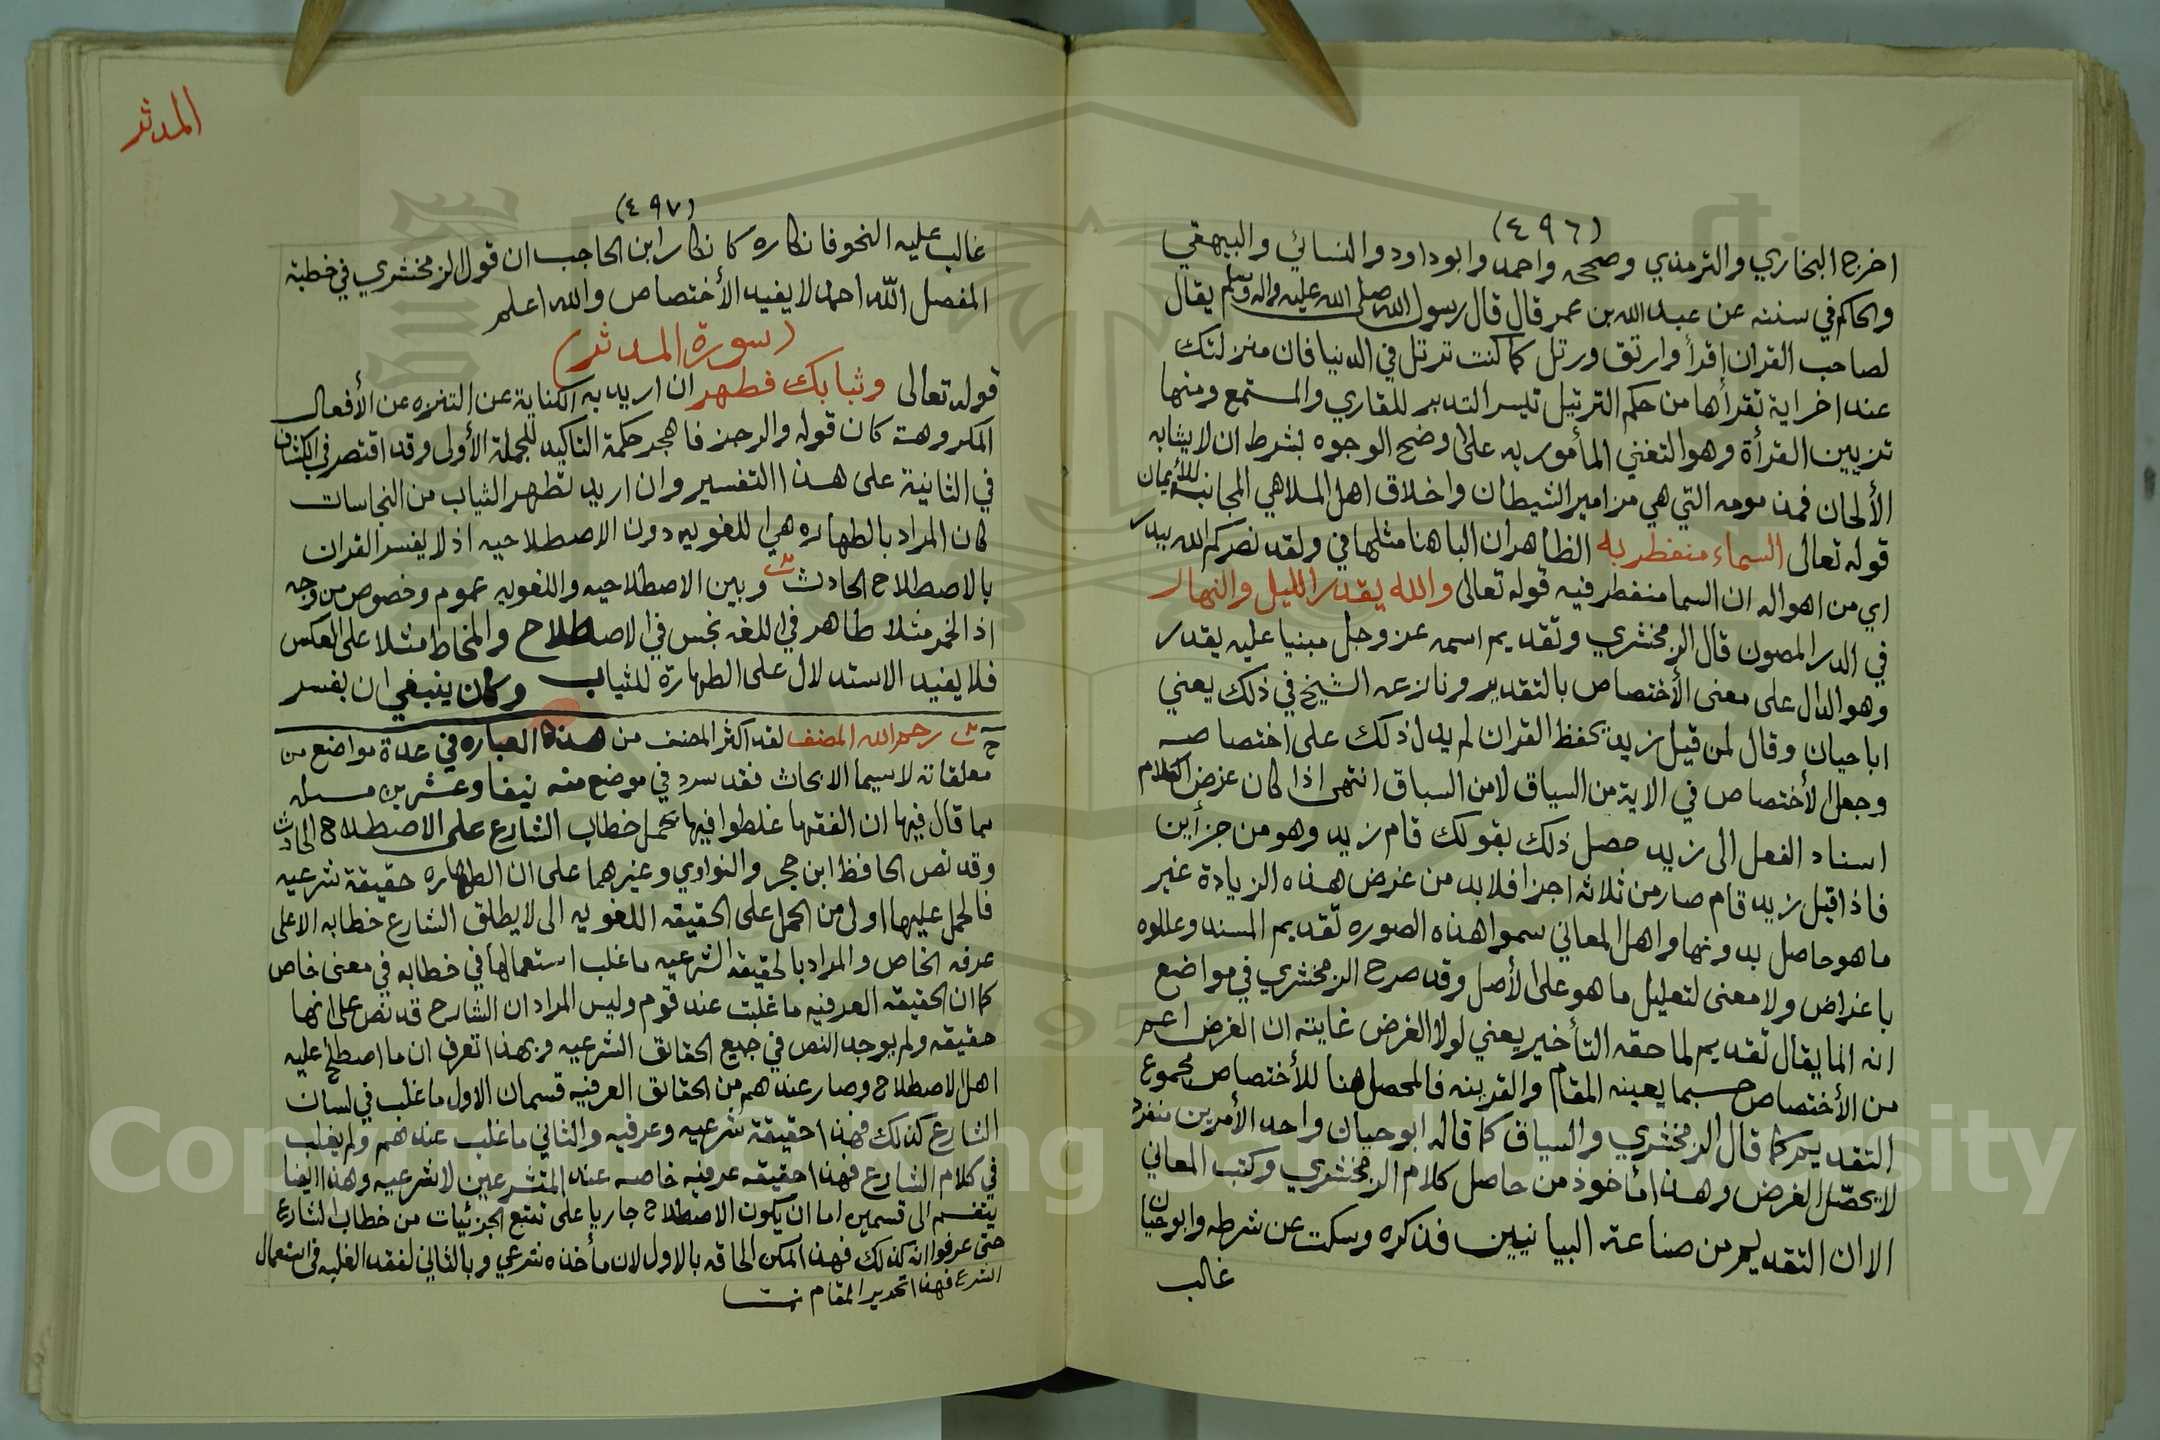 (٤٩٦)
اخرج البخاري والترمذي وصححه واحمد وابو داود والنسائي والبيهقي
والحاكم في سننه عن عبد الله بن عمر قال قال رسول الله صلى الله عليه واله وسلم يقال
لصاحب القران إقرأ وارتق ورتل كما كنت ترتل في الدنيا فان منزلتك
عند اخر اية تقرأها من حكم الترتيل تيسر التدبر للقاري والمستمع ومنها
تزيين القرأة وهو التغني المأمور به على اوضح الوجوه بشرط ان لا يشابه
الألحان فمذمومه التي هي مزامير الشيطان واخلاق اهل الملاهي المجانبه للأيمان
قوله تعالى السماء منفطر به الظاهر ان البا هنا مثلها في ولقد نصركم الله ببدر
اي من اهواله ان السما منفطر فيه قوله تعالى والله يقدر الليل والنهار
في الدر المصون قال الزمخشري وتقديم اسمه عز وجل مبنيا عليه يقدر
وهو الدال على معنى الأختصاص بالتقدير ونازعه الشيخ في ذلك يعني
ابا حيان وقال لمن قيل زيد يحفظ القران لم يدل ذلك على اختصاصه
وجعل الأختصاص في الاية من السياق لا من السباق انتهى اذا كان غرض الكلام
اسناد الفعل الى زيد حصل ذلك بقولك قام زيد وهو من جزأين
فاذا قيل زيد قام صار من ثلاثه اجزا فلا بد من غرض هذه الزيادة غير
ما هو حاصل بدونها واهل المعاني سموا هذه الصوره تقديم المسند وعللوه
باغراض ولا معنى لتعليل ما هو على الأصل وقد صرح الزمخشري في مواضع
انه انما يقال تقديم لما حقه التأخير يعني لولا الغرض غايته ان الغرض اعم
من الأختصاص حسبما يعينه المقام والقرينه فالمحصل هنا للأختصاص مجموع
التقديم كما قال الزمخشري والسياق كما قاله ابو حيان واحد الأمرين منفرد
لا يحصّل الغرض وهذا مأخوذ من حاصل كلام الزمخشري وكتب المعاني
الا ان التقديم من صناعة البيانيين فذكره وسكت عن شرطه وابو حيان
غالب
المدثر
(٤٩٧)
غالب عليه النحو فانكاره كانكار ابن الحاجب ان قول الزمخشري في خطبة
المفصل اللّه احمد لا يفيد الأختصاص والله اعلم
(سورة المدثر)
قوله تعالى وثيابك فطهر ان اريد به الكناية عن التنزه عن الأفعال
المكروهة كان قوله والرجز فاهجر حكمة التاكيد للجملة الأولى وقد اقتصر في الكشاف
في الثانية على هذا التفسير وان اريد تطهر الثياب من النجاسات
كان المراد بالطهاره هي اللغويه دون الاصطلاحيه اذ لا يفسر القران
بالاصطلاح الحادث وبين الاصطلاحيه واللغويه عموم وخصوص من وجه
اذ الخمر مثلا طاهر في اللغه نجس في الاصطلاح والمخاط مثلا على العكس
فلا يفيد الاستدلال على الطهارة للثياب وكان ينبغي ان يفسر
رحمه الله المصنف لقد اكثر المصنف من هذه العباره في عدة مواضع من
معلقاته لا سيما الابحاث فقد سرد في موضع منه نيفا وعشرين مسله
مما قال فيها ان الفقها غلطوا فيها بحمل خطاب الشارع على الاصطلاح الحادث
وقد نص الحافظ ابن حجر والنواوي وغيرهما على ان الطهاره حقيقة شرعيه
فالحمل عليها اولى من الحمل على الحقيقه اللغويه الى لا يطلق الشارع خطابه الا على
عرفه الخاص والمراد بالحقيقه الشرعيه ما غلب استعمالها في خطابه في معنى خاص
كما ان الحقيقه العرفيه ما غلبت عند قوم وليس المراد ان الشارح قد نص على انها
حقيقه ولم يوجد النص في جميع الحقائق الشرعيه وبهذا تعرف ان ما اصطلح عليه
اهل الاصطلاح وصار عندهم من الحقائق العرفيه قسمان الاول ما غلب في لسان
الشارع كذلك فهذا حقيقة شرعيه وعرفيه والثاني ما غلب عندهم ولم يغلب
في كلام الشارع فهذا حقيقه عرفيه خاصه عند المتشرعين لا شرعيه وهذا ايضا
ينقسم الى قسمين اما ان يكون الاصطلاح جاريا على تتبع الجزئيات من خطاب الشارع
حتى عرفوا انه كذلك فهذا الممكن الحاقه بالاول لان مأخذه شرعي وبالثاني لفقد الغلبه في استعمال
الشرع فهذا تحرير المقام
Copyright © King Saud University